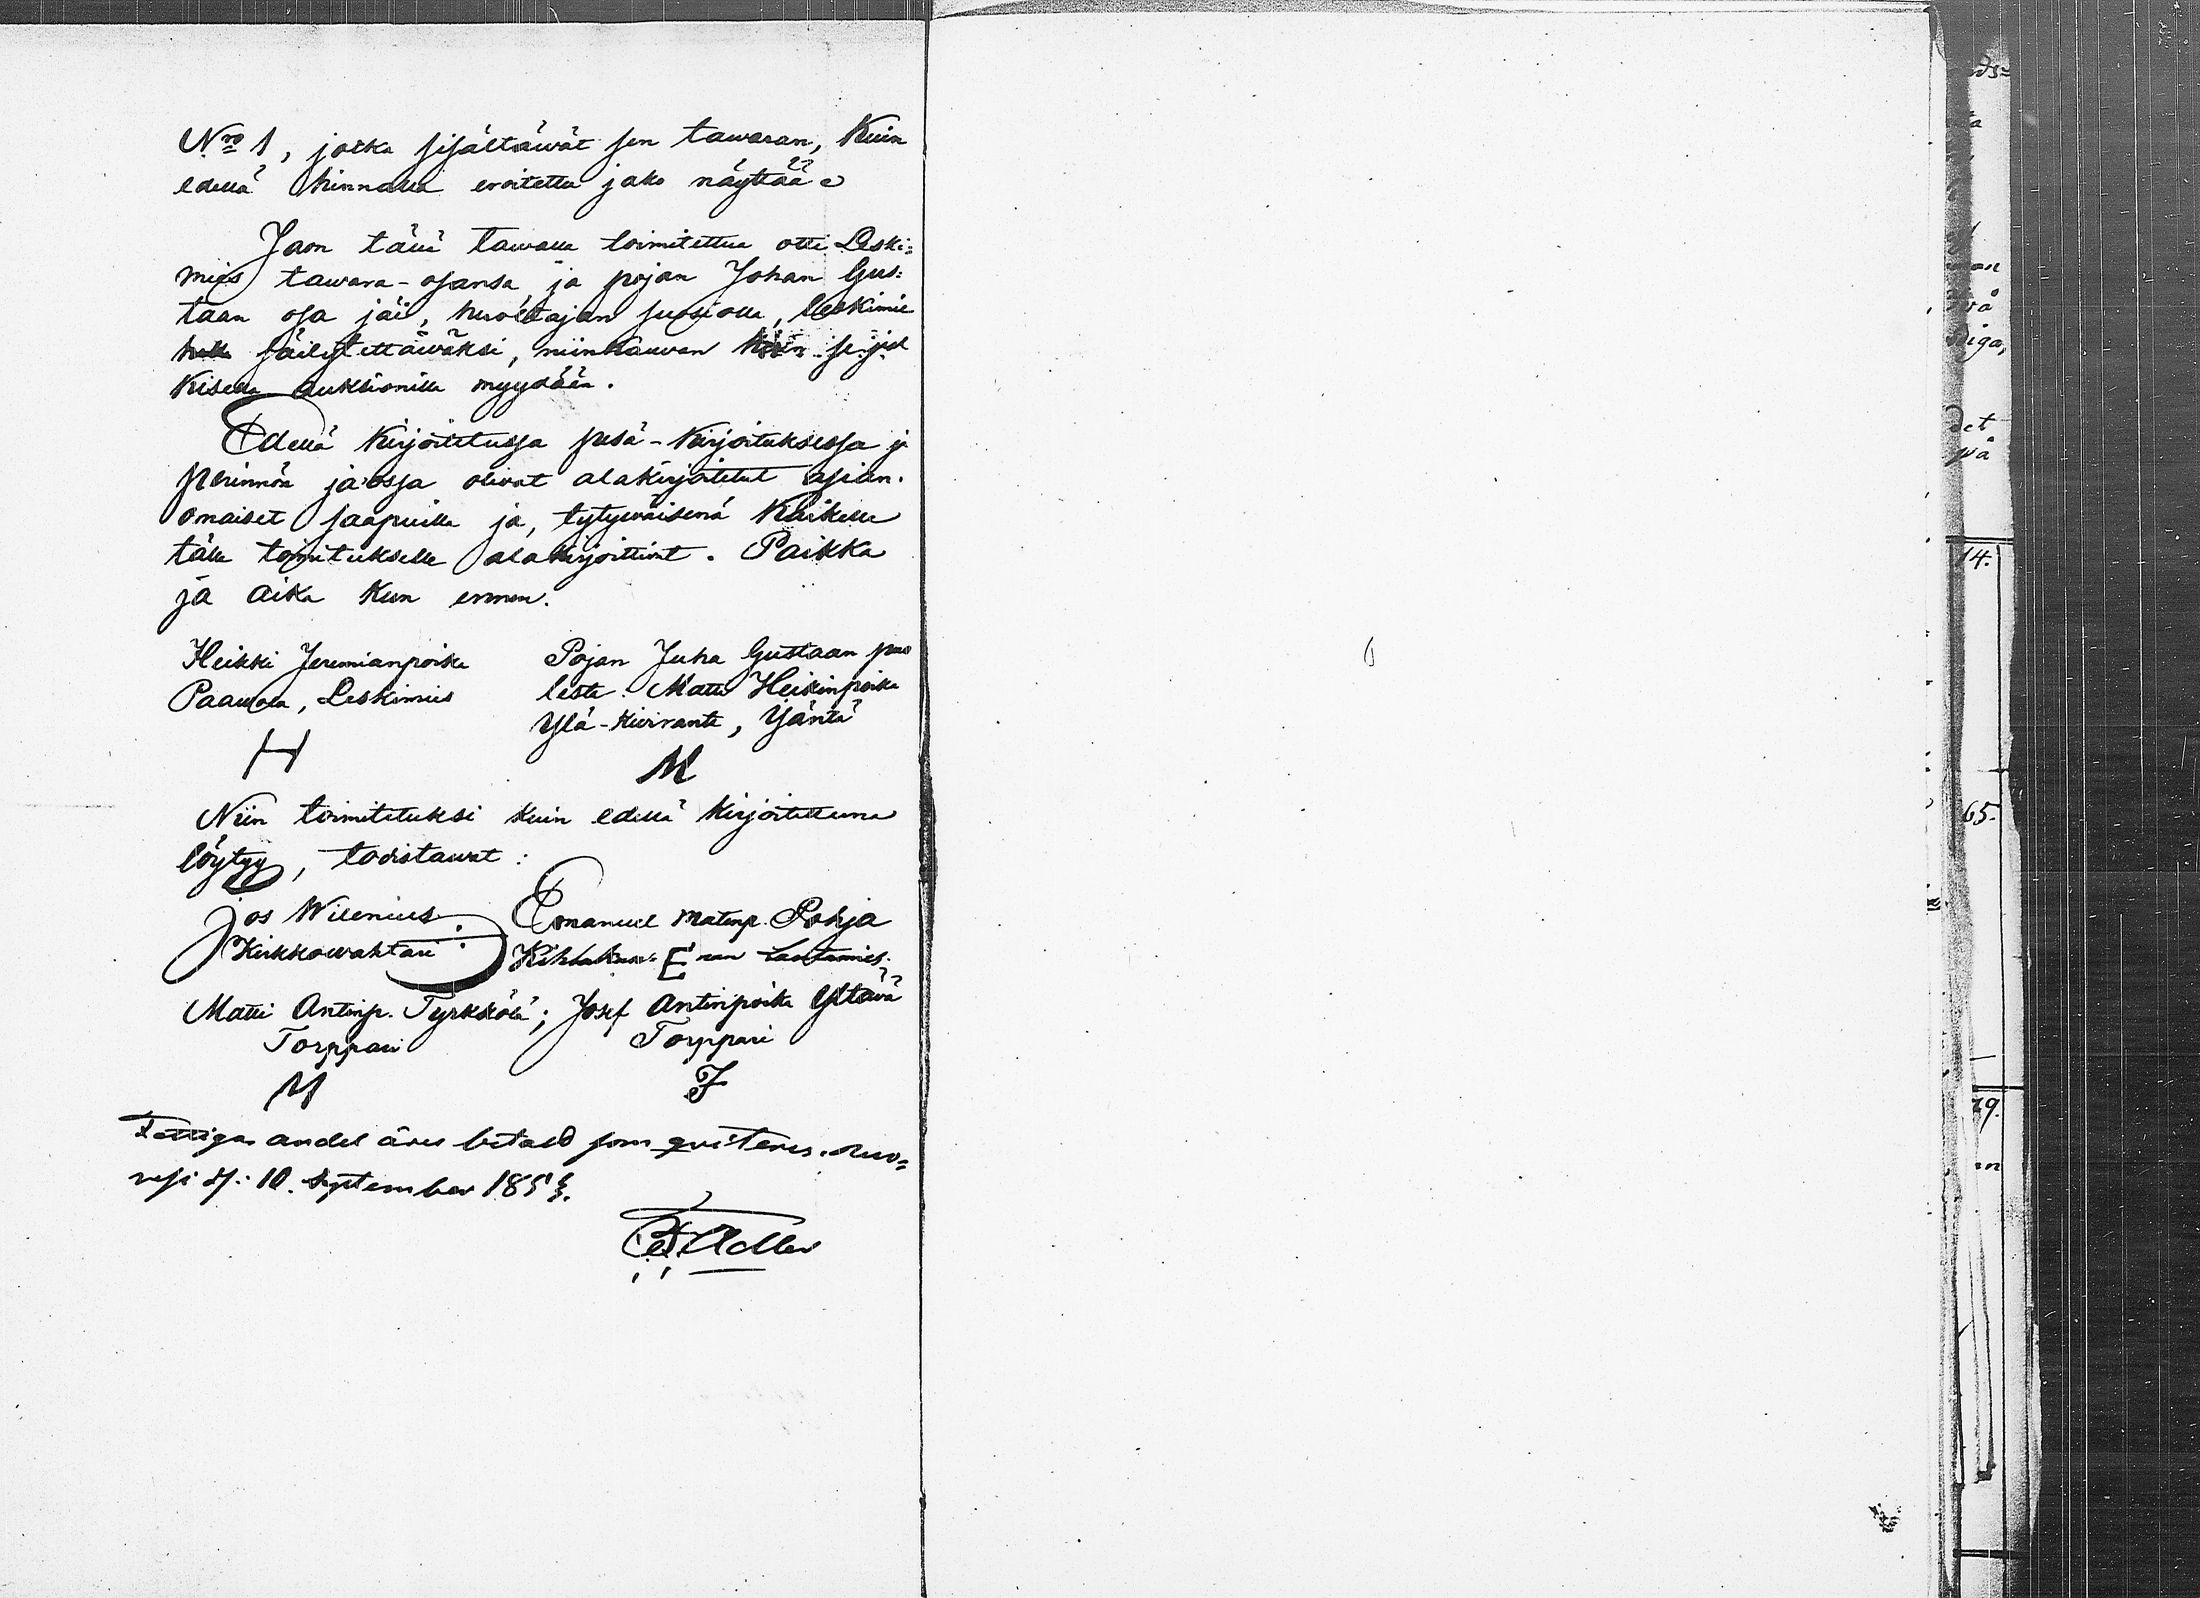 N:ro 1, jotka sisältäwät sen tawaran, kuin
edellä hinnalla eroitettu jako näyttää
Jaon tällä tawalla toimitettua otti Leski=
mies tawara-osansa ja pojan Johan Gus=
taan osa jäi, huoltajan suosiolla, leskimie
helle säilytettäwäksi, niinkauwan kuin se jul
kisella auksionilla myydään.
Edellä kirjoitetussa pesä-kirjoituksessa ja
perinnön jaossa oliwat alakirjoitetut asian-
omaiset saapuilla ja, tytywäisenä kaikelle
tälle toimitukselle alakirjoittiwat. Paikka
ja aika kun ennen.
Heikki Jeremianpoika
Paawola, Leskimies
H
Pojan Juha Gustaan puo
lesta Matti Heikinpoika
Ylä-Kiviranta, Isäntä
M
Niin toimitetuksi kuin edellä kirjoitettuna
löytyy, todistawat:
Jos Wilenius
Kirkkowahtari
Emanuel Matinp. Pohja
Kihlakun- E nan Lautamies.
Matti Antinp. Tyrkkölä; Josef Antinpoika Yltäwä
Torppari Torppari
M J
Fattigas andel äres betald som qvitteras. Ruo=
vesi d: 10. September 185
Adler
14.
65.
29.